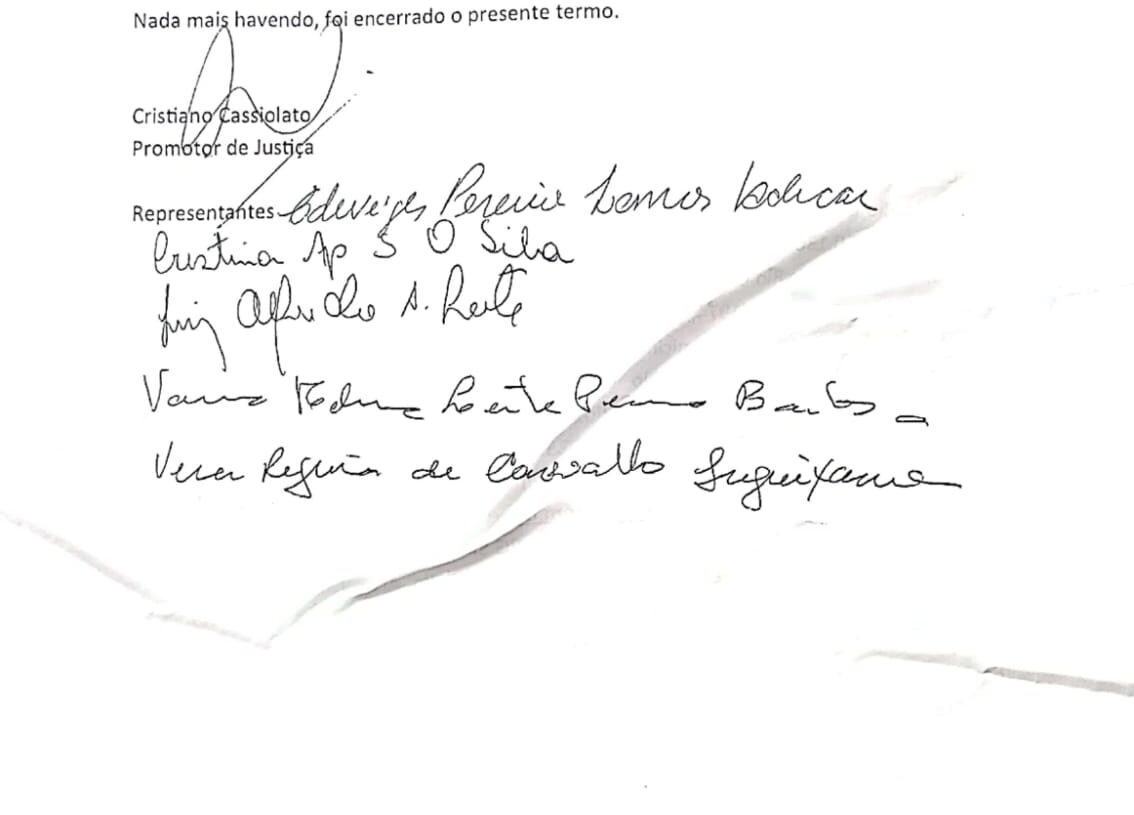 Nada mais havendo, foi encerrado o presente termo.
Cristiano Cassiolato
Promotor de Justiça
Representantes Edeveiges Pereira Lemes
Cristina Ap S O Silva
Luiz Alfredo A. Leite
Leite
Vera Regina de Carvalho